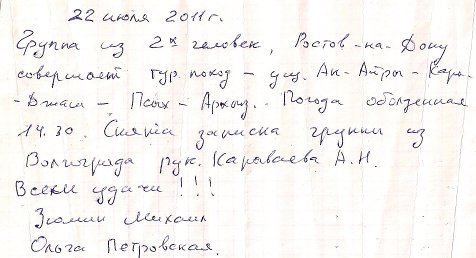 22 июля 2011 г.
Группа из 2х человек, Ростов-на-Дону
совершает тур. поход – ущ. Ак-Айры – Кара-
-Джаш – Псыш – Архыз. Погода обалденная
14.30. Снята записка группы из
Волгограда рук. Караваева А.Н.
Всем удачи!!!
Зюмин Михаил
Ольга Петровская.